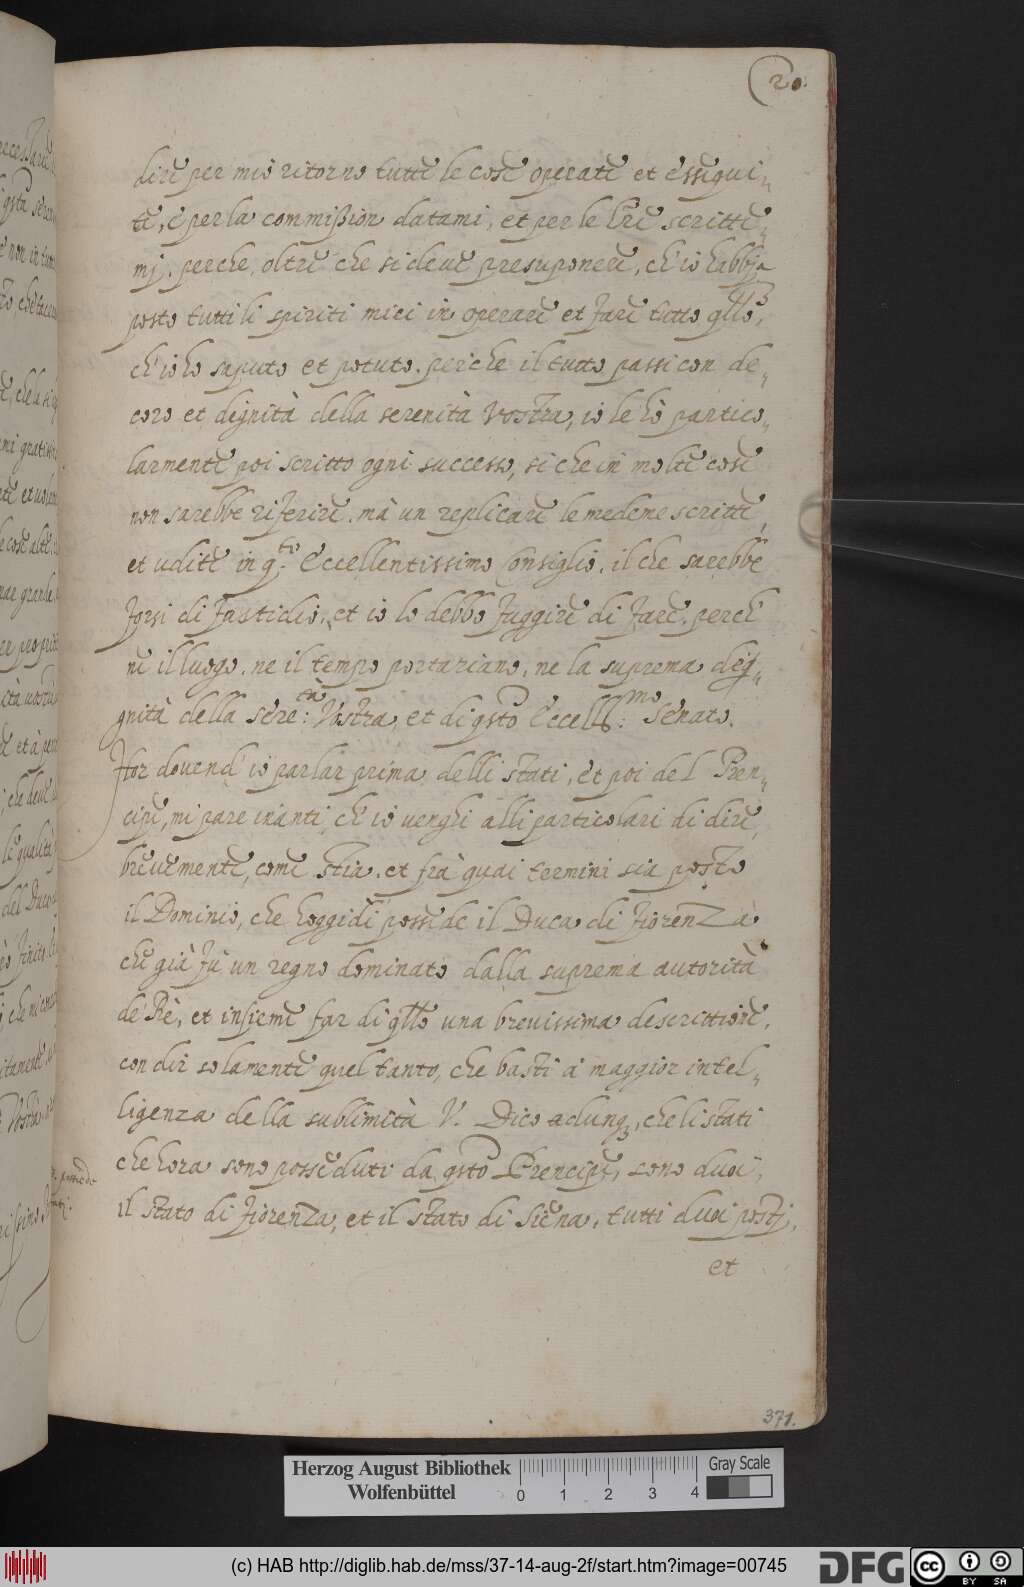 20.
dire per mio ritorno tutte le cose operate et essequi-
te, e per la commißion datami, et per le lre scritte-
mj. perche, oltre che si deue presuponere, ch'io habbja
posto tutti li spiriti miei in operare et fare tutto qllo,
ch'io ho saputo et potuto. perche il tutto passi con de-
coro et dignità della serenità Vostra, io le hò partico-
larmente poi scritto ogni successo, si che in molte cose
non sarebbe riferire. mà un replicare le medeme scritte,
et udite in q.to Eccellentissimo Consiglio. il che sarebbe
forsi di fastidio, et io lo debbo fuggire di fare. perch'
ne il luogo, ne il tempo portariano, ne la suprema dig-
gnità della sere:tà Vostra, et di qsto Eccell:mo Senato.
Hor douend'io parlar prima delli stati, et poi del Pren-
cipe, mi pare inanti ch'io uenghi alli particolari di dire
breuemente, come stia. et frà quai termini sia posto
il Dominio, che hoggidi possede il Duca di Fiorenza
che già fù un regno dominato dalla suprema autorità
de Rè, et insieme far di qllo una breuissima descrittione,
con dir solamente quel tanto, che basti à maggior intel-
ligenza della sublimità V. Dico adunq, che li stati
che hora sono posseduti da qsto Prencipe, sono duoi,
il stato di Fiorenza, et il stato di Siena. tutti duoi postj,
et
371.
Herzog August Bibliothek
Wolfenbüttel
0 1 2 3 4
Gray Scale
(c) HAB http://diglib.hab.de/mss/37-14-aug-2f/start.htm?image=00745
DFG
cc BY SA